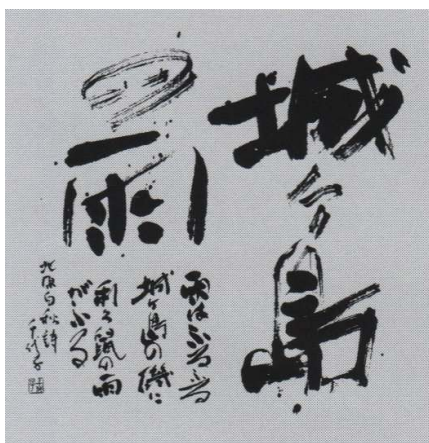 城ヶ島
の雨
雨はふるふる
城ヶ島の磯に
利久鼠の雨
がふる
北原白秋詩
千代子